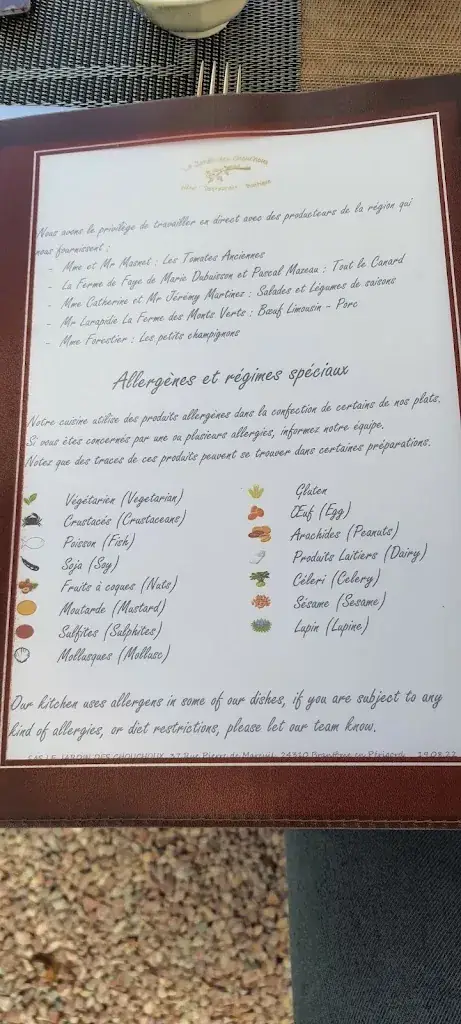 Nous avons le privilège de travailler en direct avec des producteurs de la région qui
nous fournissent :
- Mme et Mr Mosnet : Les Tomates Anciennes
- La Ferme de Faye de Marie Dubuisson et Pascal Mazeau : Tout le Canard
- Mme Catherine et Mr Jérémy Martinez : Salades et Légumes de saisons
- Mr Larapidie La Ferme des Monts Verts : Bœuf Limousin - Porc
- Mme Forestier : Les petits champignons
Allergènes et régimes spéciaux
Notre cuisine utilise des produits allergènes dans la confection de certains de nos plats.
Si vous êtes concernés par une ou plusieurs allergies, informez notre équipe.
Notez que des traces de ces produits peuvent se trouver dans certaines préparations.
Végétarien (Vegetarian)
Crustacés (Crustaceans)
Poisson (Fish)
Soja (Soy)
Fruits à coques (Nuts)
Moutarde (Mustard)
Sulfites (Sulphites)
Mollusques (Mollusc)
Gluten
Œuf (Egg)
Arachides (Peanuts)
Produits Laitiers (Dairy)
Céleri (Celery)
Sésame (Sesame)
Lupin (Lupine)
Our kitchen uses allergens in some of our dishes, if you are subject to any
kind of allergies, or diet restrictions, please let our team know.
SAS LE JARDIN DES CHOUCHOUX, 37 Rue Pierre de Mareuil, 24310 Brantôme en Périgord